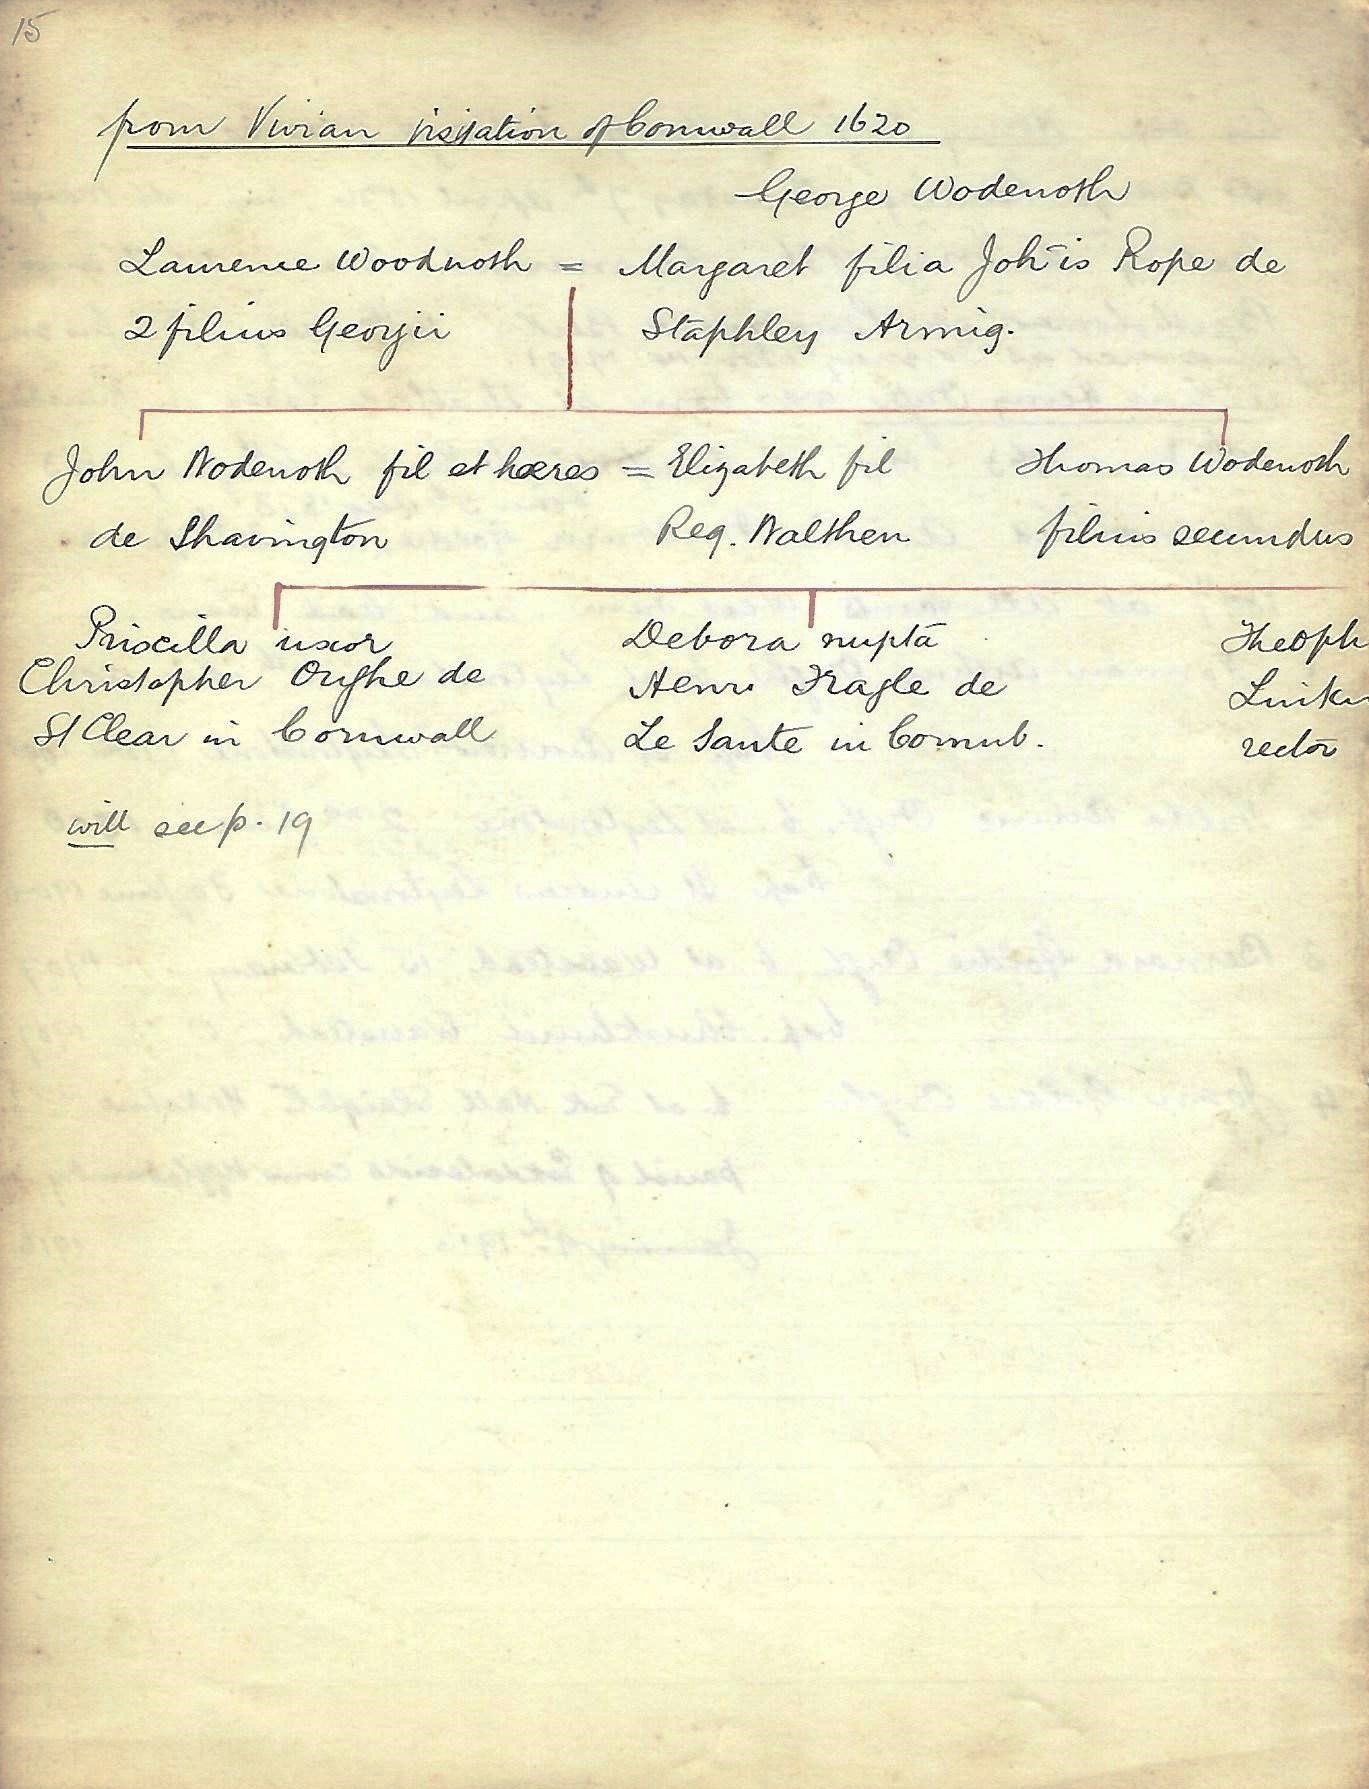 15
from Vivian Visitation of Cornwall 1620
George Wodenoth
Laurence Woodnoth = Margaret filia Joh̄is Rope de
2 filius Georgii Staphley Armig.
John Wodenoth fil et hæres = Elizabeth fil Thomas Wodenoth
de Shavington Reg. Walthen filius secundus
Priscilla uxor Debora nuptā Theoph
Christopher Oughe de Henri Nagle de
St Clear in Cornwall Le Sante in Cornub. rector
will see p. 19